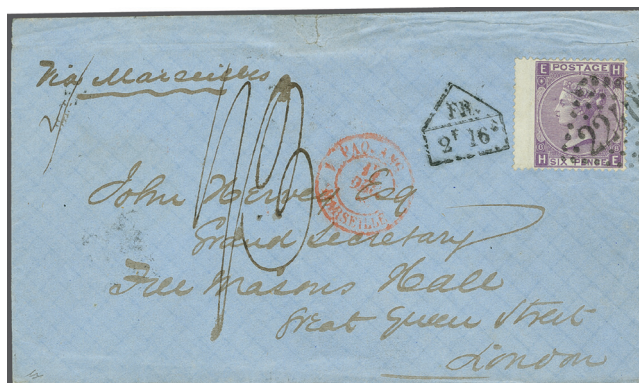 Via Marseilles
E POSTAGE H
H SIX PENCE E
FR.
2F 16c
PAQ. ANG.
MARSEILLE
John Hervey Esq
Grand Secretary
Free Masons Hall
Great Queen Street
London